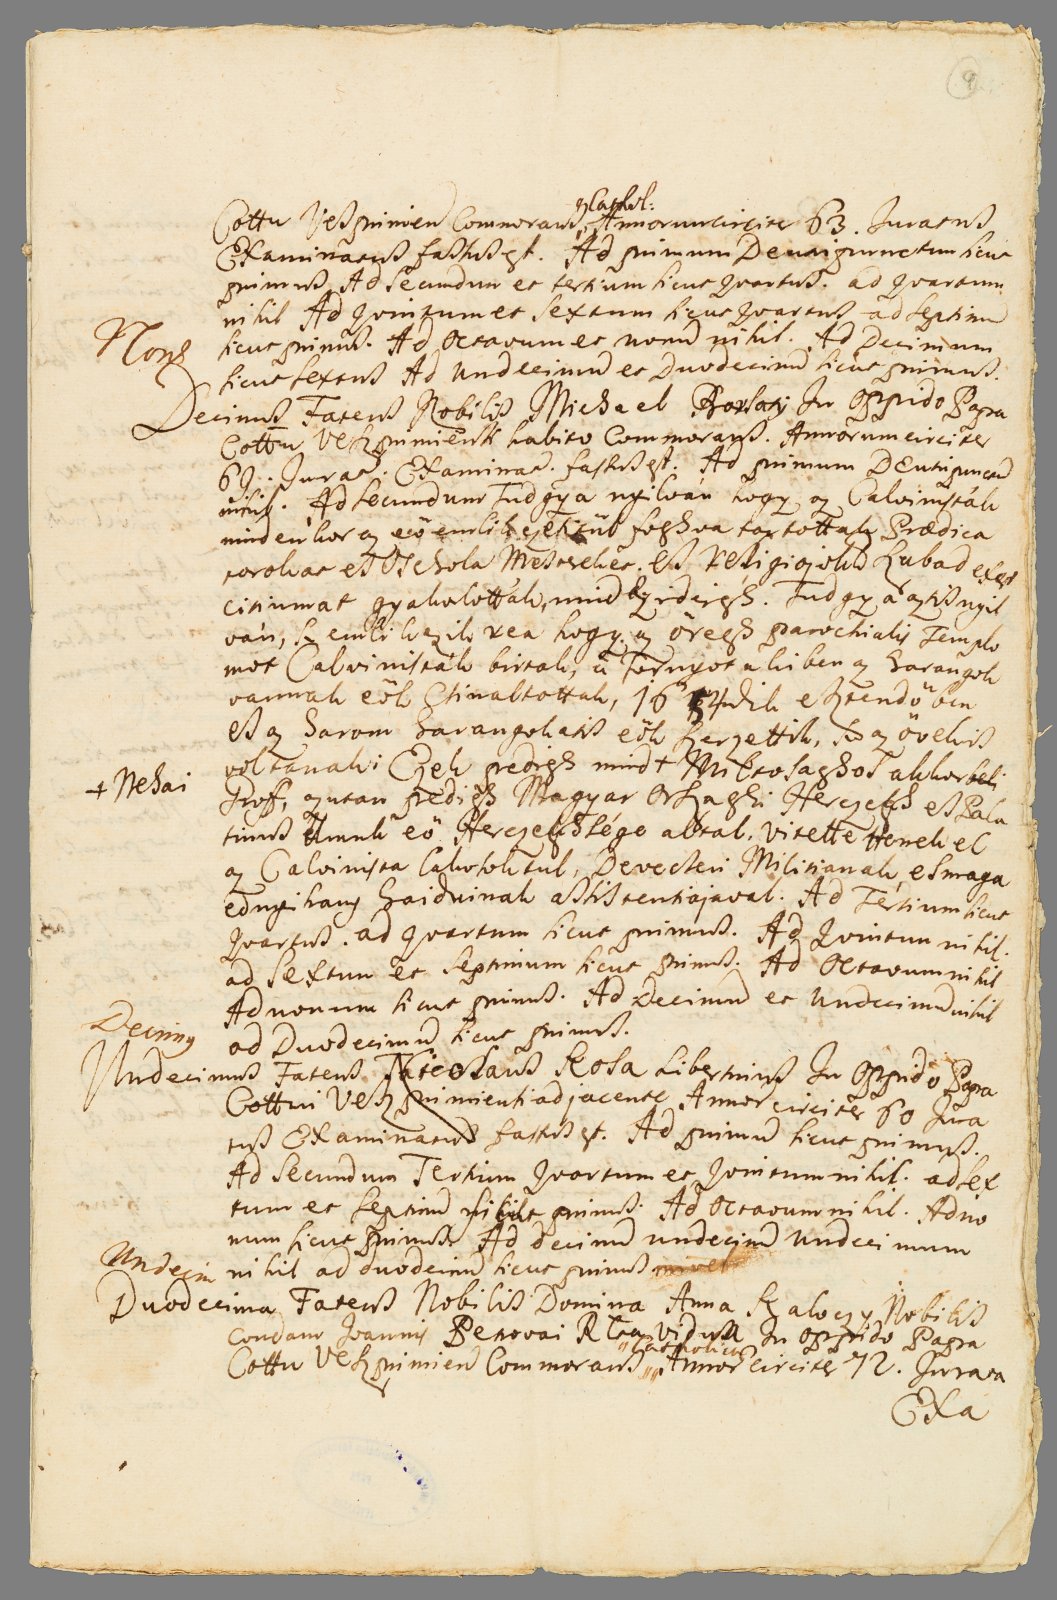 9
Cathol:
Cottu Veszprimien Commorans, Annorum circiter 63. Juratus
Examinatus fassus est. Ad primum Deutri punctum sicut
primus, Ad secundum et tertium sicut quartus. ad quartum
nihil Ad quintum et sextum sicut quartus ad septimu
Nong
sicut primus. Ad Octavum et nonu nihil. Ad Decimum
sicut sextus Ad Undecimu et Duodecimu sicut primus.
Decimus Fatens Nobilis Michael Borsoti In Oppido Papa
Cottu Veszprimiensi habito Commorans. Annorum circiter
69. Jurat. Examinat. fassus est. Ad primum Deutri punctu
nihil. Ad secundum Tudgya nyilván hogy az Calvinisták
mindenkor az eö emlikezetitül foghva tartottak Praedica
torokat es Schola Mestereket. es religiojokk szabad exer
citiumat gyakolottak, mind ez ideigh. Tudgya aztis nyil
ván, s emlikezik rea hogy az öregh parochialis Templo
mot Calvinisták birtak, a Tornyot a kiben az harangok
vannak eök Csinaltottak, 16 54dik esztendöben
es az harom harangokatis eök szerzettik, s az övekis
voltanak: Ezek pedigh mind + Miltosaghos akkorbeli
+ Nehai
Groff, azutan pedigh Magyar Orszaghi Herczegh es Pala
tinus Urnnk eö Herczeghsége altal. vitettettenek el
az Calvinista lakosoktul, Devecseri Militianak, es maga
ednyihany haiduinak assistentiajaval. Ad Tertium sicut
quartus. ad quartum sicut primus. Ad quintum nihil.
ad sextum et septimum sicut primus. Ad Octavum nihil
Ad nonum sicut primus. Ad Decimu et Undecimu nihil
Decimg
ad Duodecimu sicut primus.
Undecimus Fatens Nicolaus Kosa Libertinus In Oppido Papa
Cottui Veszprimiensi adjacente Annor circiter 60 Jura
tus Examinatus fassus est. Ad primu sicut primus.
Ad secundum Tertium quartum et quintum nihil. ad sex
tum et septimu sicut primus. Ad Octavum nihil. Ad no
num sicut primus Ad decimu undecimu Undecimum
Undecim
nihil ad duodecimu sicut primus
Duodecima Fatens Nobilis Domina Anna Szaloczy Nobilis
condam Joannis Benovai Rlta vidua In oppido Papa
Catholica
Cottu Veszprimien Commorans, Annor circiter 72. Jurata
Exa